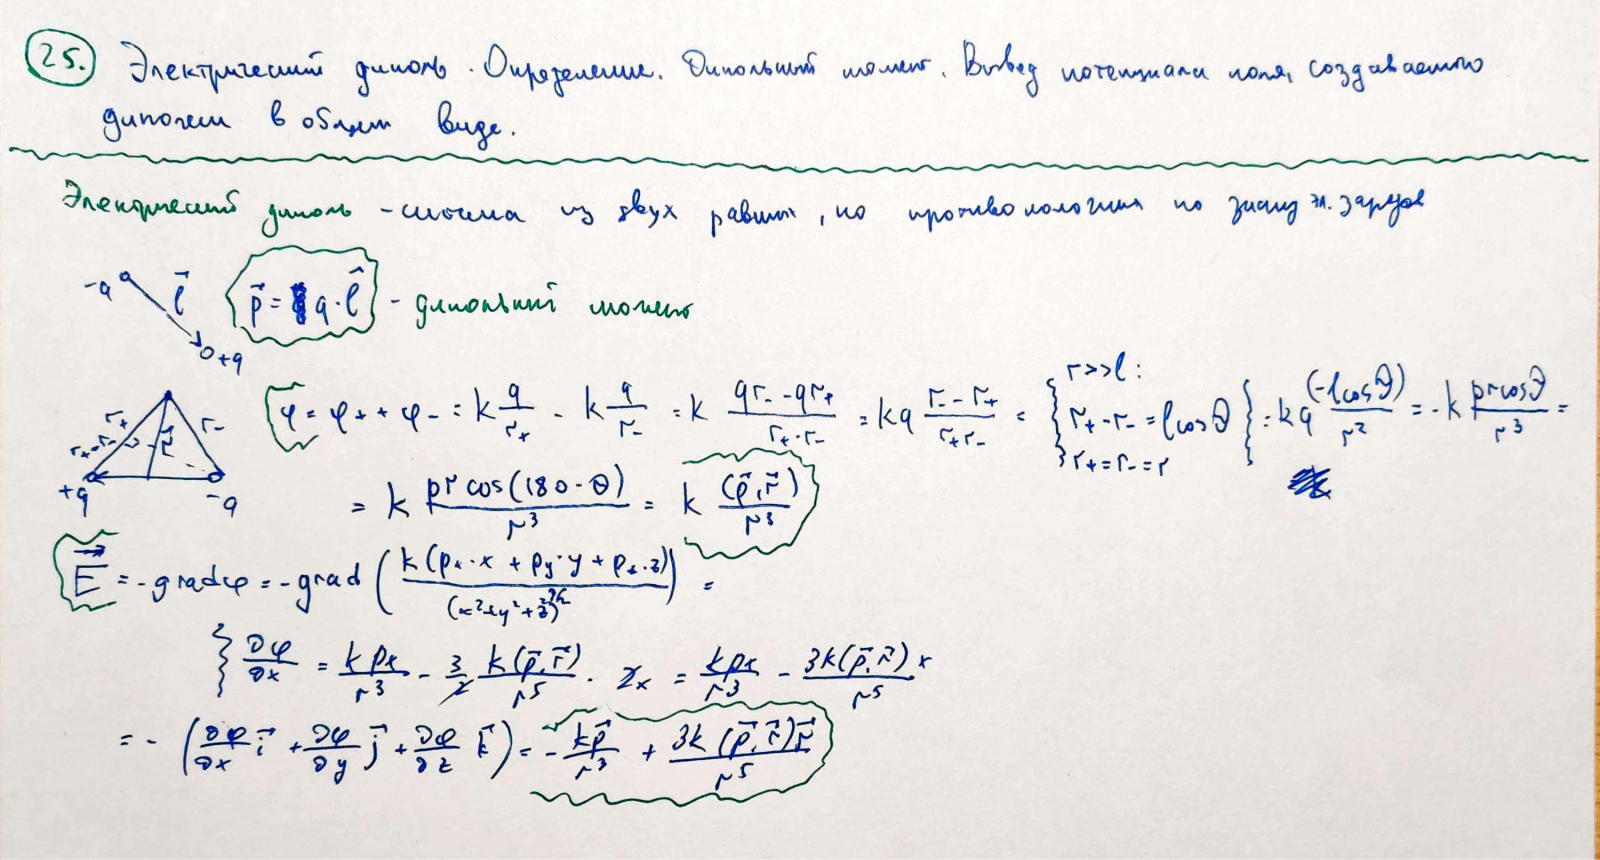 25. Электрический диполь. Определение. Дипольный момент. Вывод потенциала поля, создаваемого
диполем в общем виде.
Электрический диполь - система из двух равных, но противоположных по знаку эл. зарядов
-q l⃗ +q p⃗ = q · l⃗ - дипольный момент
r₊ r₋ r₊-r₋ r⃗ +q -q
φ = φ₊ + φ₋ = k q/r₊ - k q/r₋ = k (qr₋ - qr₊)/(r₊·r₋) = kq (r₋ - r₊)/(r₊r₋) = { r>>l: r₊-r₋ = l cosθ r₊=r₋=r } = kq (-l cosθ)/r² = -k pr cosθ/r³ =
= k pr cos(180-θ)/r³ = k (p⃗,r⃗)/r³
E⃗ = -gradφ = -grad( k(pₓ·x + p_y·y + p_z·z)/(x²+y²+z²)^(3/2) ) =
{ ∂φ/∂x = kpx/r³ - 3/2 k(p⃗,r⃗)/r⁵ · 2x = kpx/r³ - 3k(p⃗,r⃗)x/r⁵
= - (∂φ/∂x i⃗ + ∂φ/∂y j⃗ + ∂φ/∂z k⃗) = - kp⃗/r³ + 3k(p⃗,r⃗)r⃗/r⁵